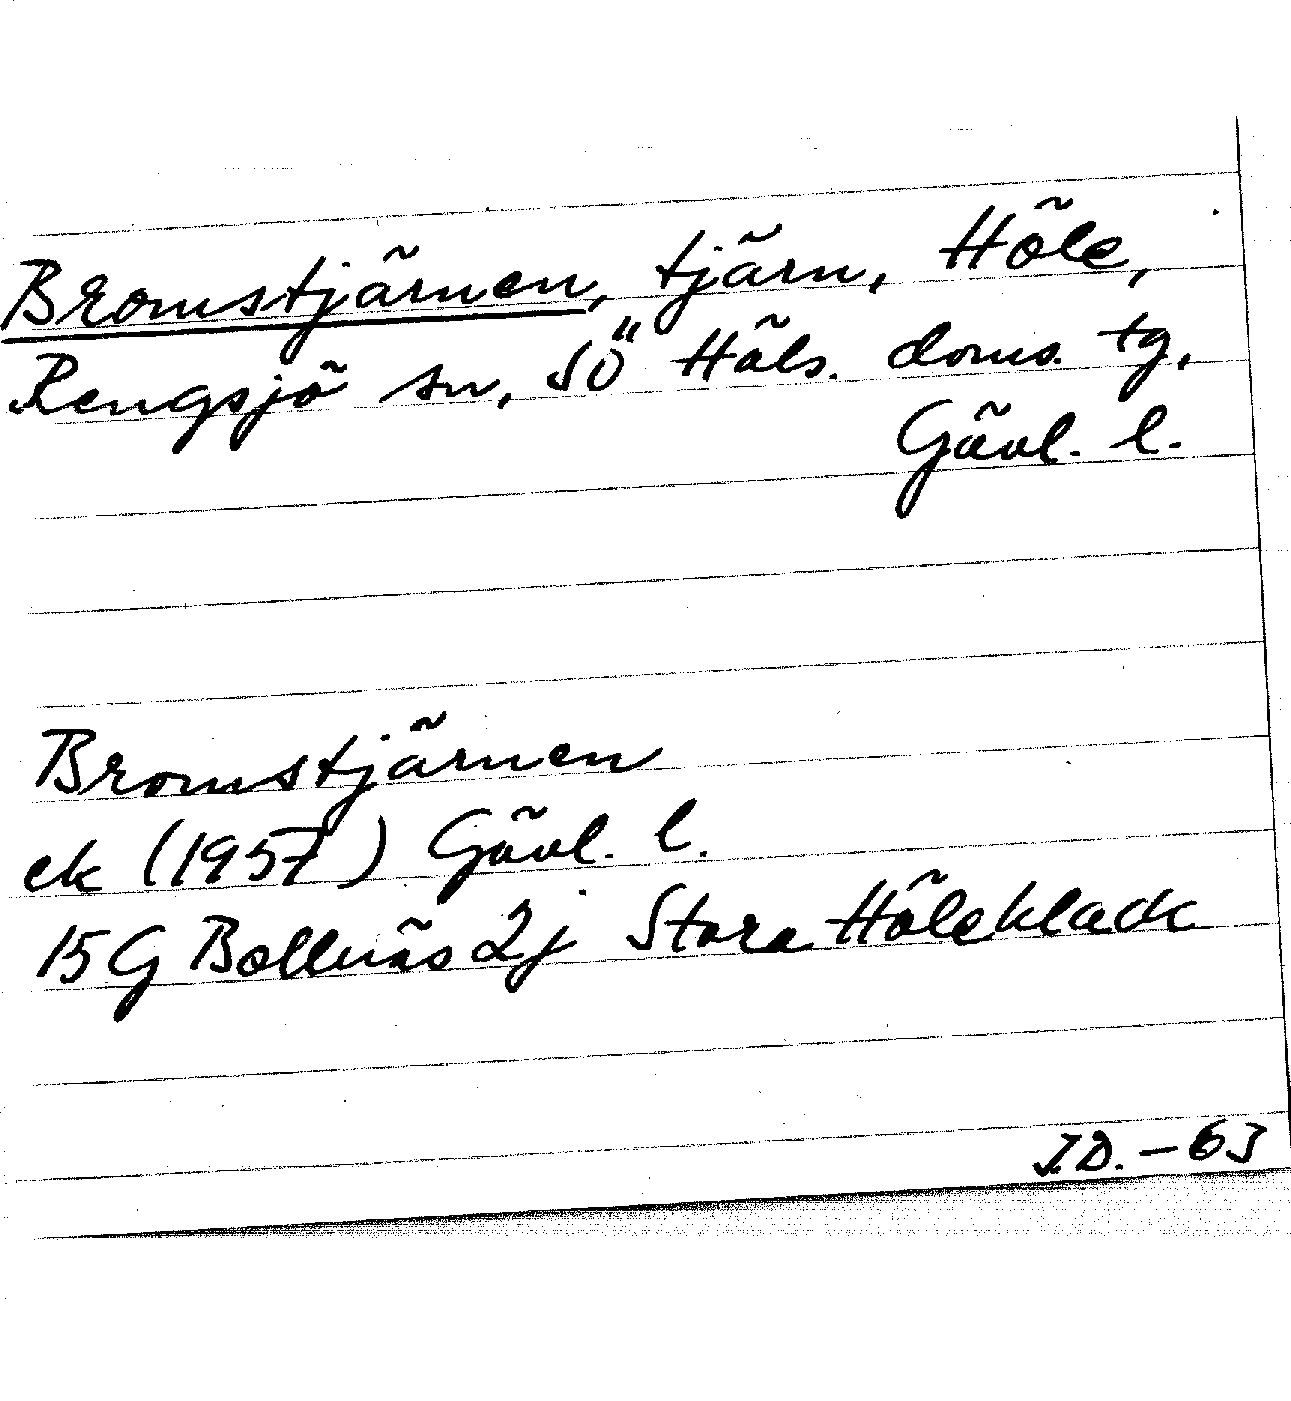 Bromstjärnen, tjärn, Höle,
Rengsjö sn, SÖ Häls. doms. tg,
Gävl. l.
Bromstjärnen
ek (1957) Gävl. l.
15G Bollnäs 2j Stora Höleklack
J.D. - 63